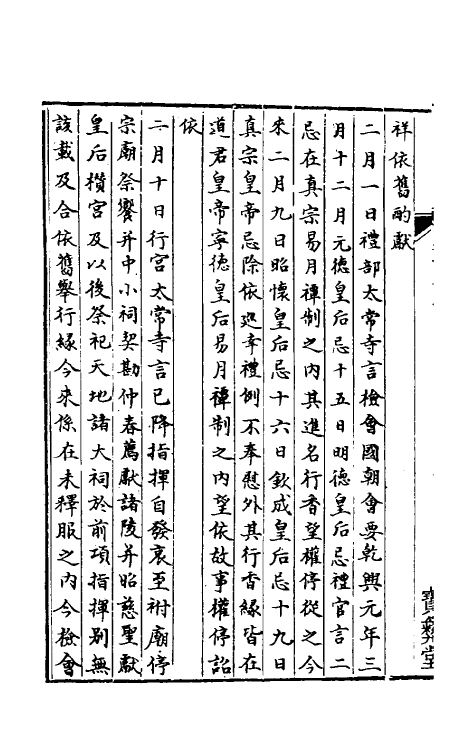 祥依舊酌獻
二月一日禮部太常寺言檢會國朝會要乾興元年三
月十二月元德皇后忌十五日明德皇后忌禮官言二
忌在真宗易月禫制之内其進名行香望權停從之今
來二月九日昭懷皇后忌十六日欽成皇后忌十九日
真宗皇帝忌除依廵幸禮例不奉慰外其行香緣皆在
道君皇帝寧德皇后易月禫制之内望依故事權停詔
依
二月十日行宫太常寺言已降指揮自發哀至祔廟停
宗廟祭饗并中小祠契勘仲春薦獻諸陵并昭慈聖獻
皇后欑宫及以後祭祀天地諸大祠於前項指揮别無
該載及合依舊舉行緣今來係在未釋服之内今檢會